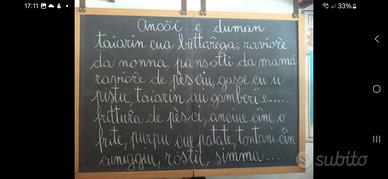 17:11
33%
Ancöi e duman
taiarin cua buttarega, raviore
da nonna, pansotti da mamá
raviore de pèsciu, gasse cu u
pistu, taiarin ai gamberi e.....
frittura de pèsci, anciue cine o
frite, purpu cue patate, tontani cin
cuniggiu, rostii, simma...
subito